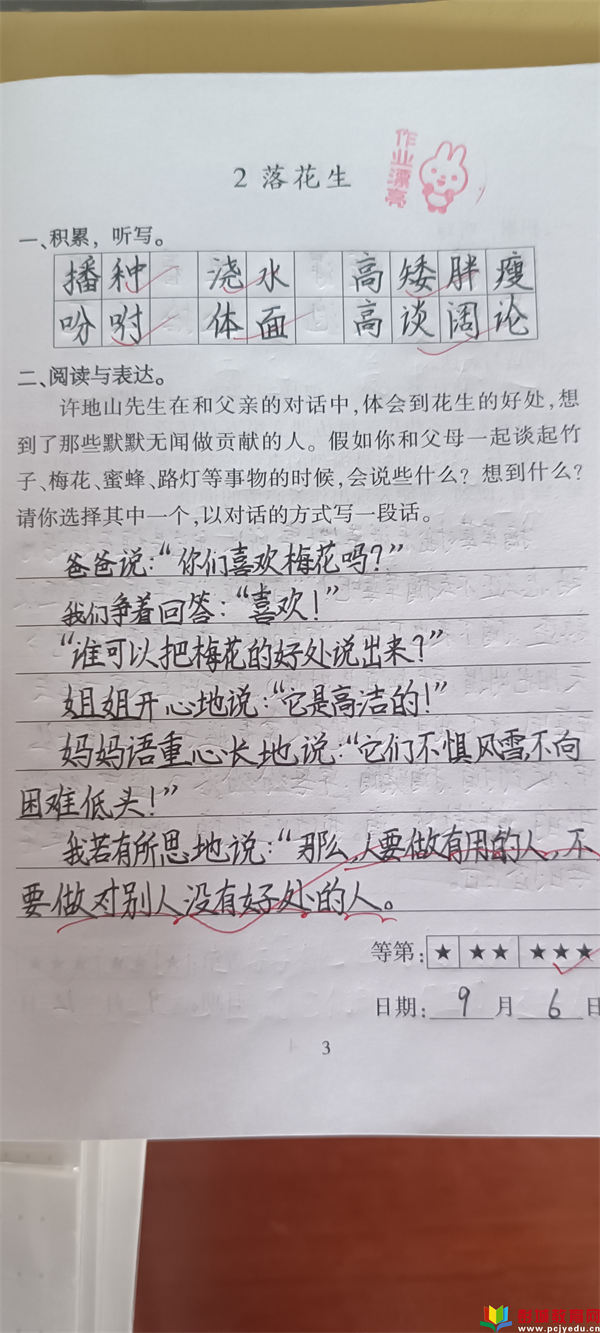 2 落花生
作业漂亮
一、积累，听写。
播种 浇水 高矮胖瘦
吩咐 体面 高谈阔论
二、阅读与表达。
许地山先生在和父亲的对话中，体会到花生的好处，想
到了那些默默无闻做贡献的人。假如你和父母一起谈起竹
子、梅花、蜜蜂、路灯等事物的时候，会说些什么？想到什么？
请你选择其中一个，以对话的方式写一段话。
爸爸说：“你们喜欢梅花吗？”
我们争着回答：“喜欢！”
“谁可以把梅花的好处说出来？”
姐姐开心地说：“它是高洁的！”
妈妈语重心长地说：“它们不惧风雪，不向
困难低头！”
我若有所思地说：“那么，人要做有用的人，不
要做对别人没有好处的人。
等第：★ ★★ ★★★
日期：9月6日
3
教育网
www.pcjyedu.cn